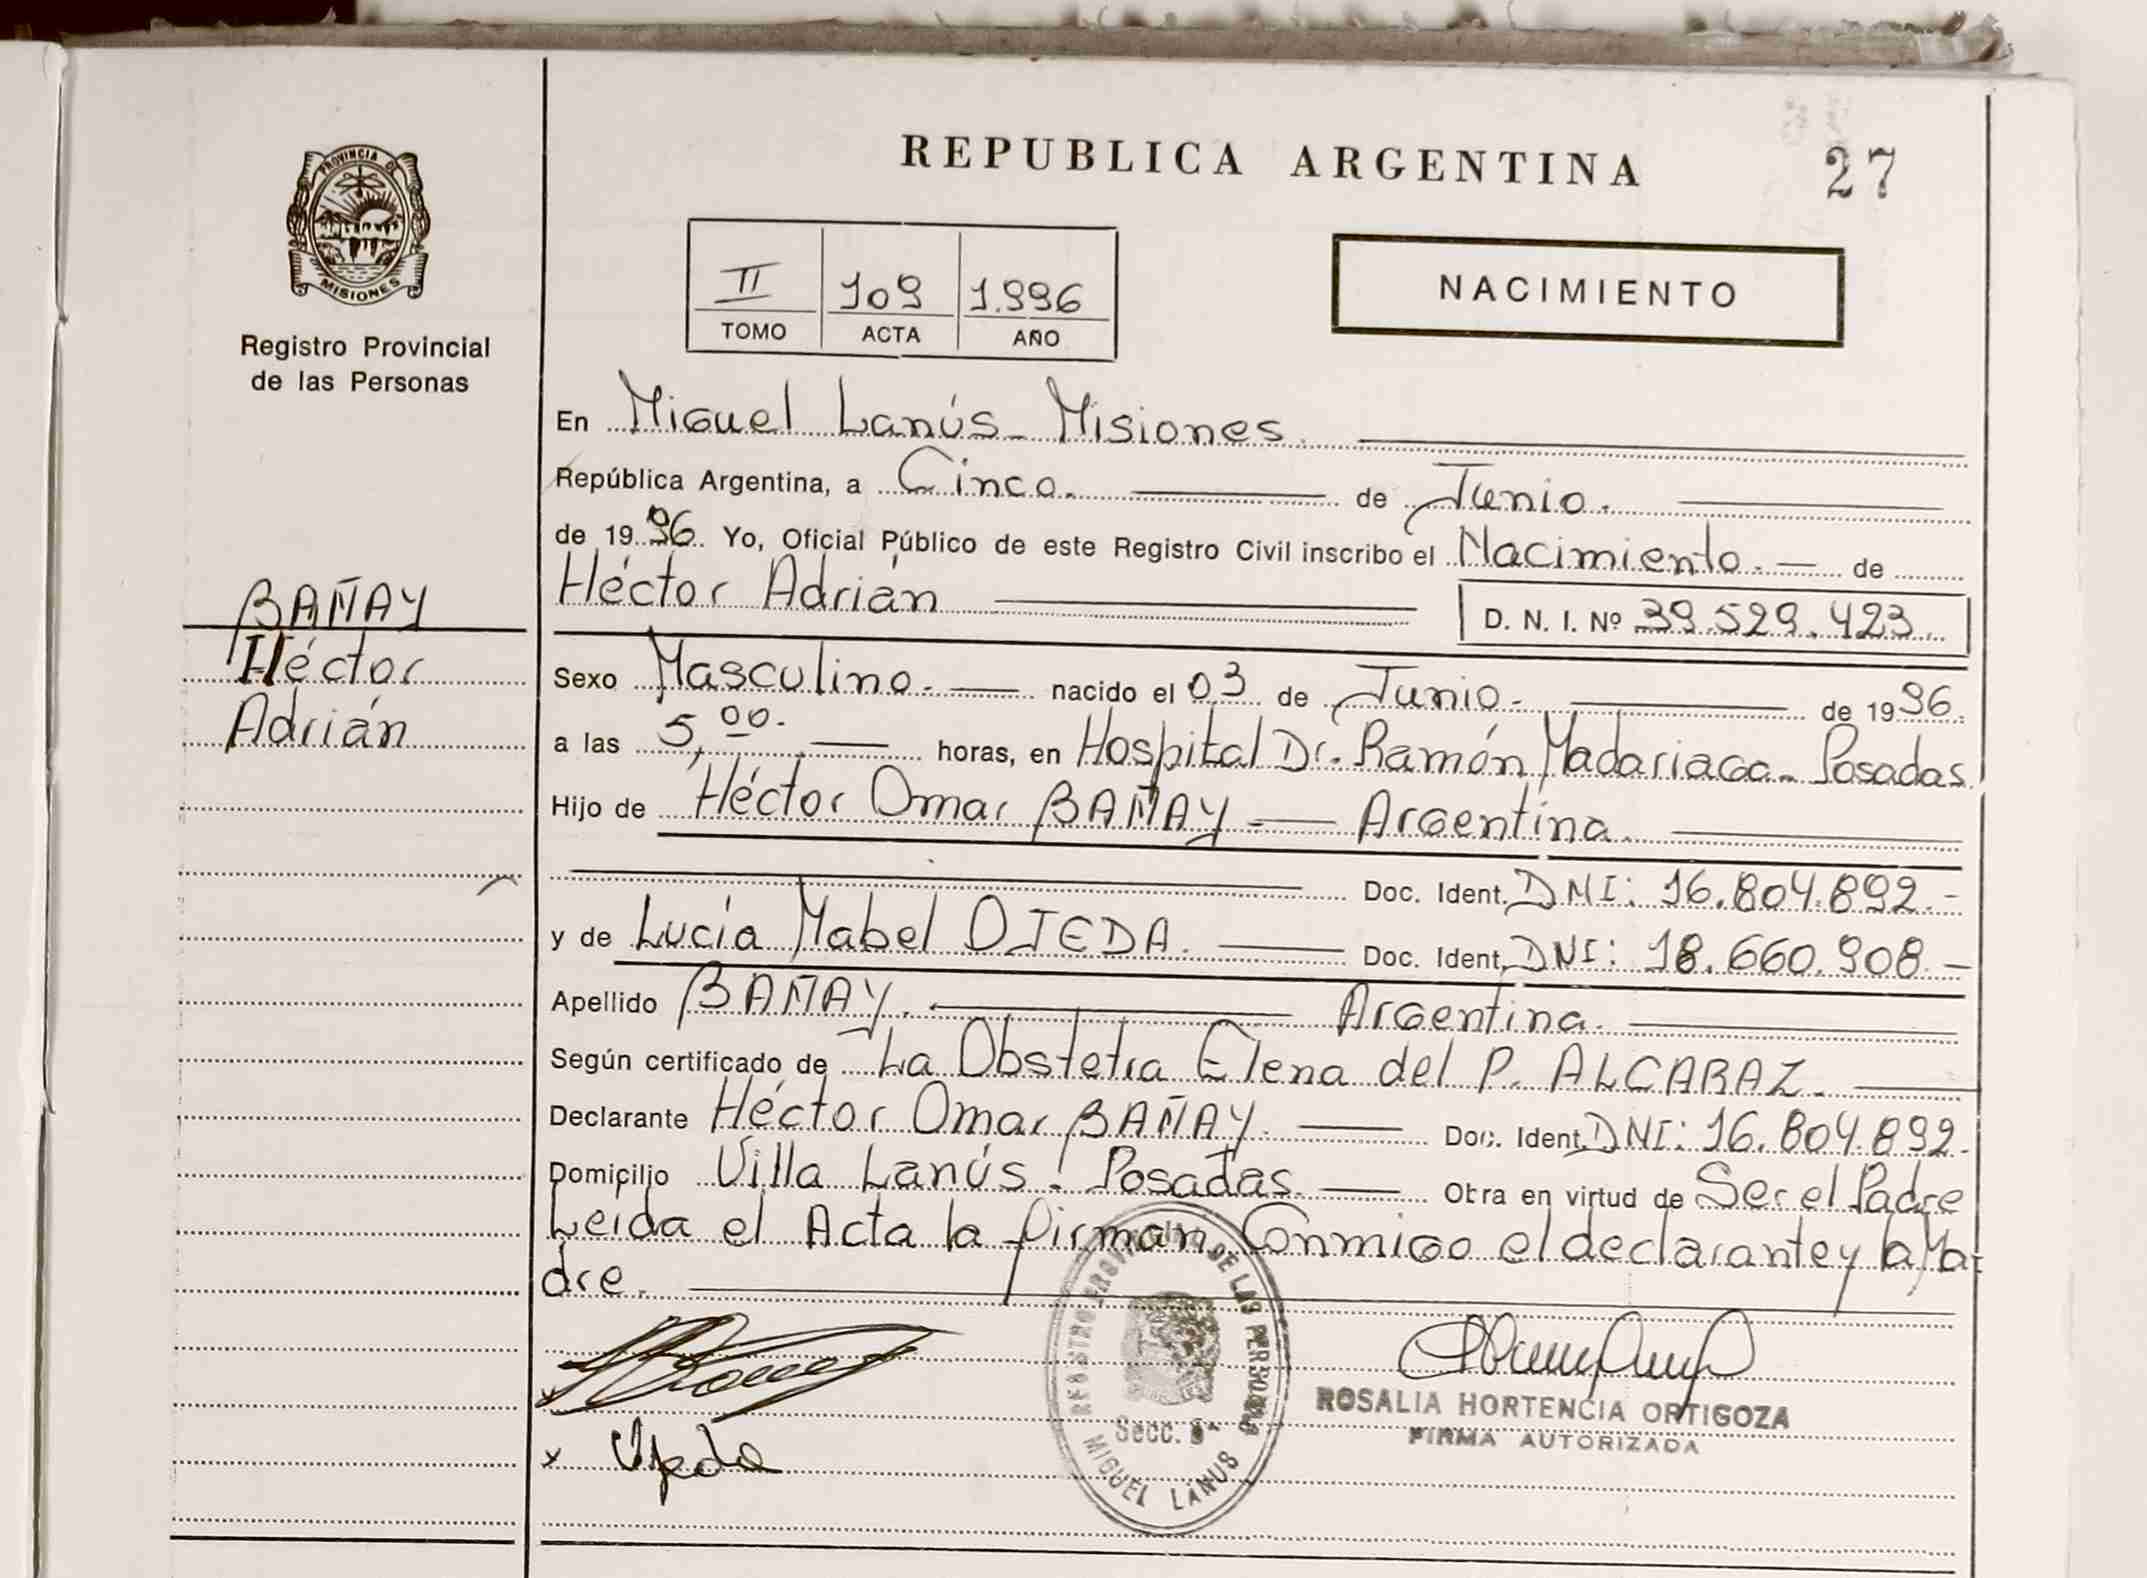 PROVINCIA DE
MISIONES
Registro Provincial
de las Personas
BAÑAY
Héctor
Adrián
REPUBLICA ARGENTINA
27
II 109 1.996
TOMO ACTA AÑO
NACIMIENTO
En Miguel Lanús - Misiones.
República Argentina, a Cinco. de Junio.
de 1996. Yo, Oficial Público de este Registro Civil inscribo el Nacimiento. - de
Héctor Adrián
D. N. I. Nº 39.529.423.
Sexo Masculino. - nacido el 03 de Junio. de 1996.
a las 5,00. - horas, en Hospital Dr. Ramón Madariaga - Posadas
Hijo de Héctor Omar BAÑAY - Argentina.
Doc. Ident. DNI: 16.804.892.-
y de Lucía Mabel OJEDA. Doc. Ident. DNI: 18.660.908.-
Apellido BAÑAY. Argentina.
Según certificado de La Obstetra Elena del P. ALCARAZ.
Declarante Héctor Omar BAÑAY. Doc. Ident. DNI: 16.804.892.
Domicilio Villa Lanús. Posadas. Obra en virtud de Ser el Padre
Leida el Acta la firman Conmigo el declarante y la Ma-
dre.
REGISTRO PROVINCIAL DE LAS PERSONAS
Secc. 8ª
MIGUEL LANUS
ROSALIA HORTENCIA ORTIGOZA
FIRMA AUTORIZADA
x Ojeda